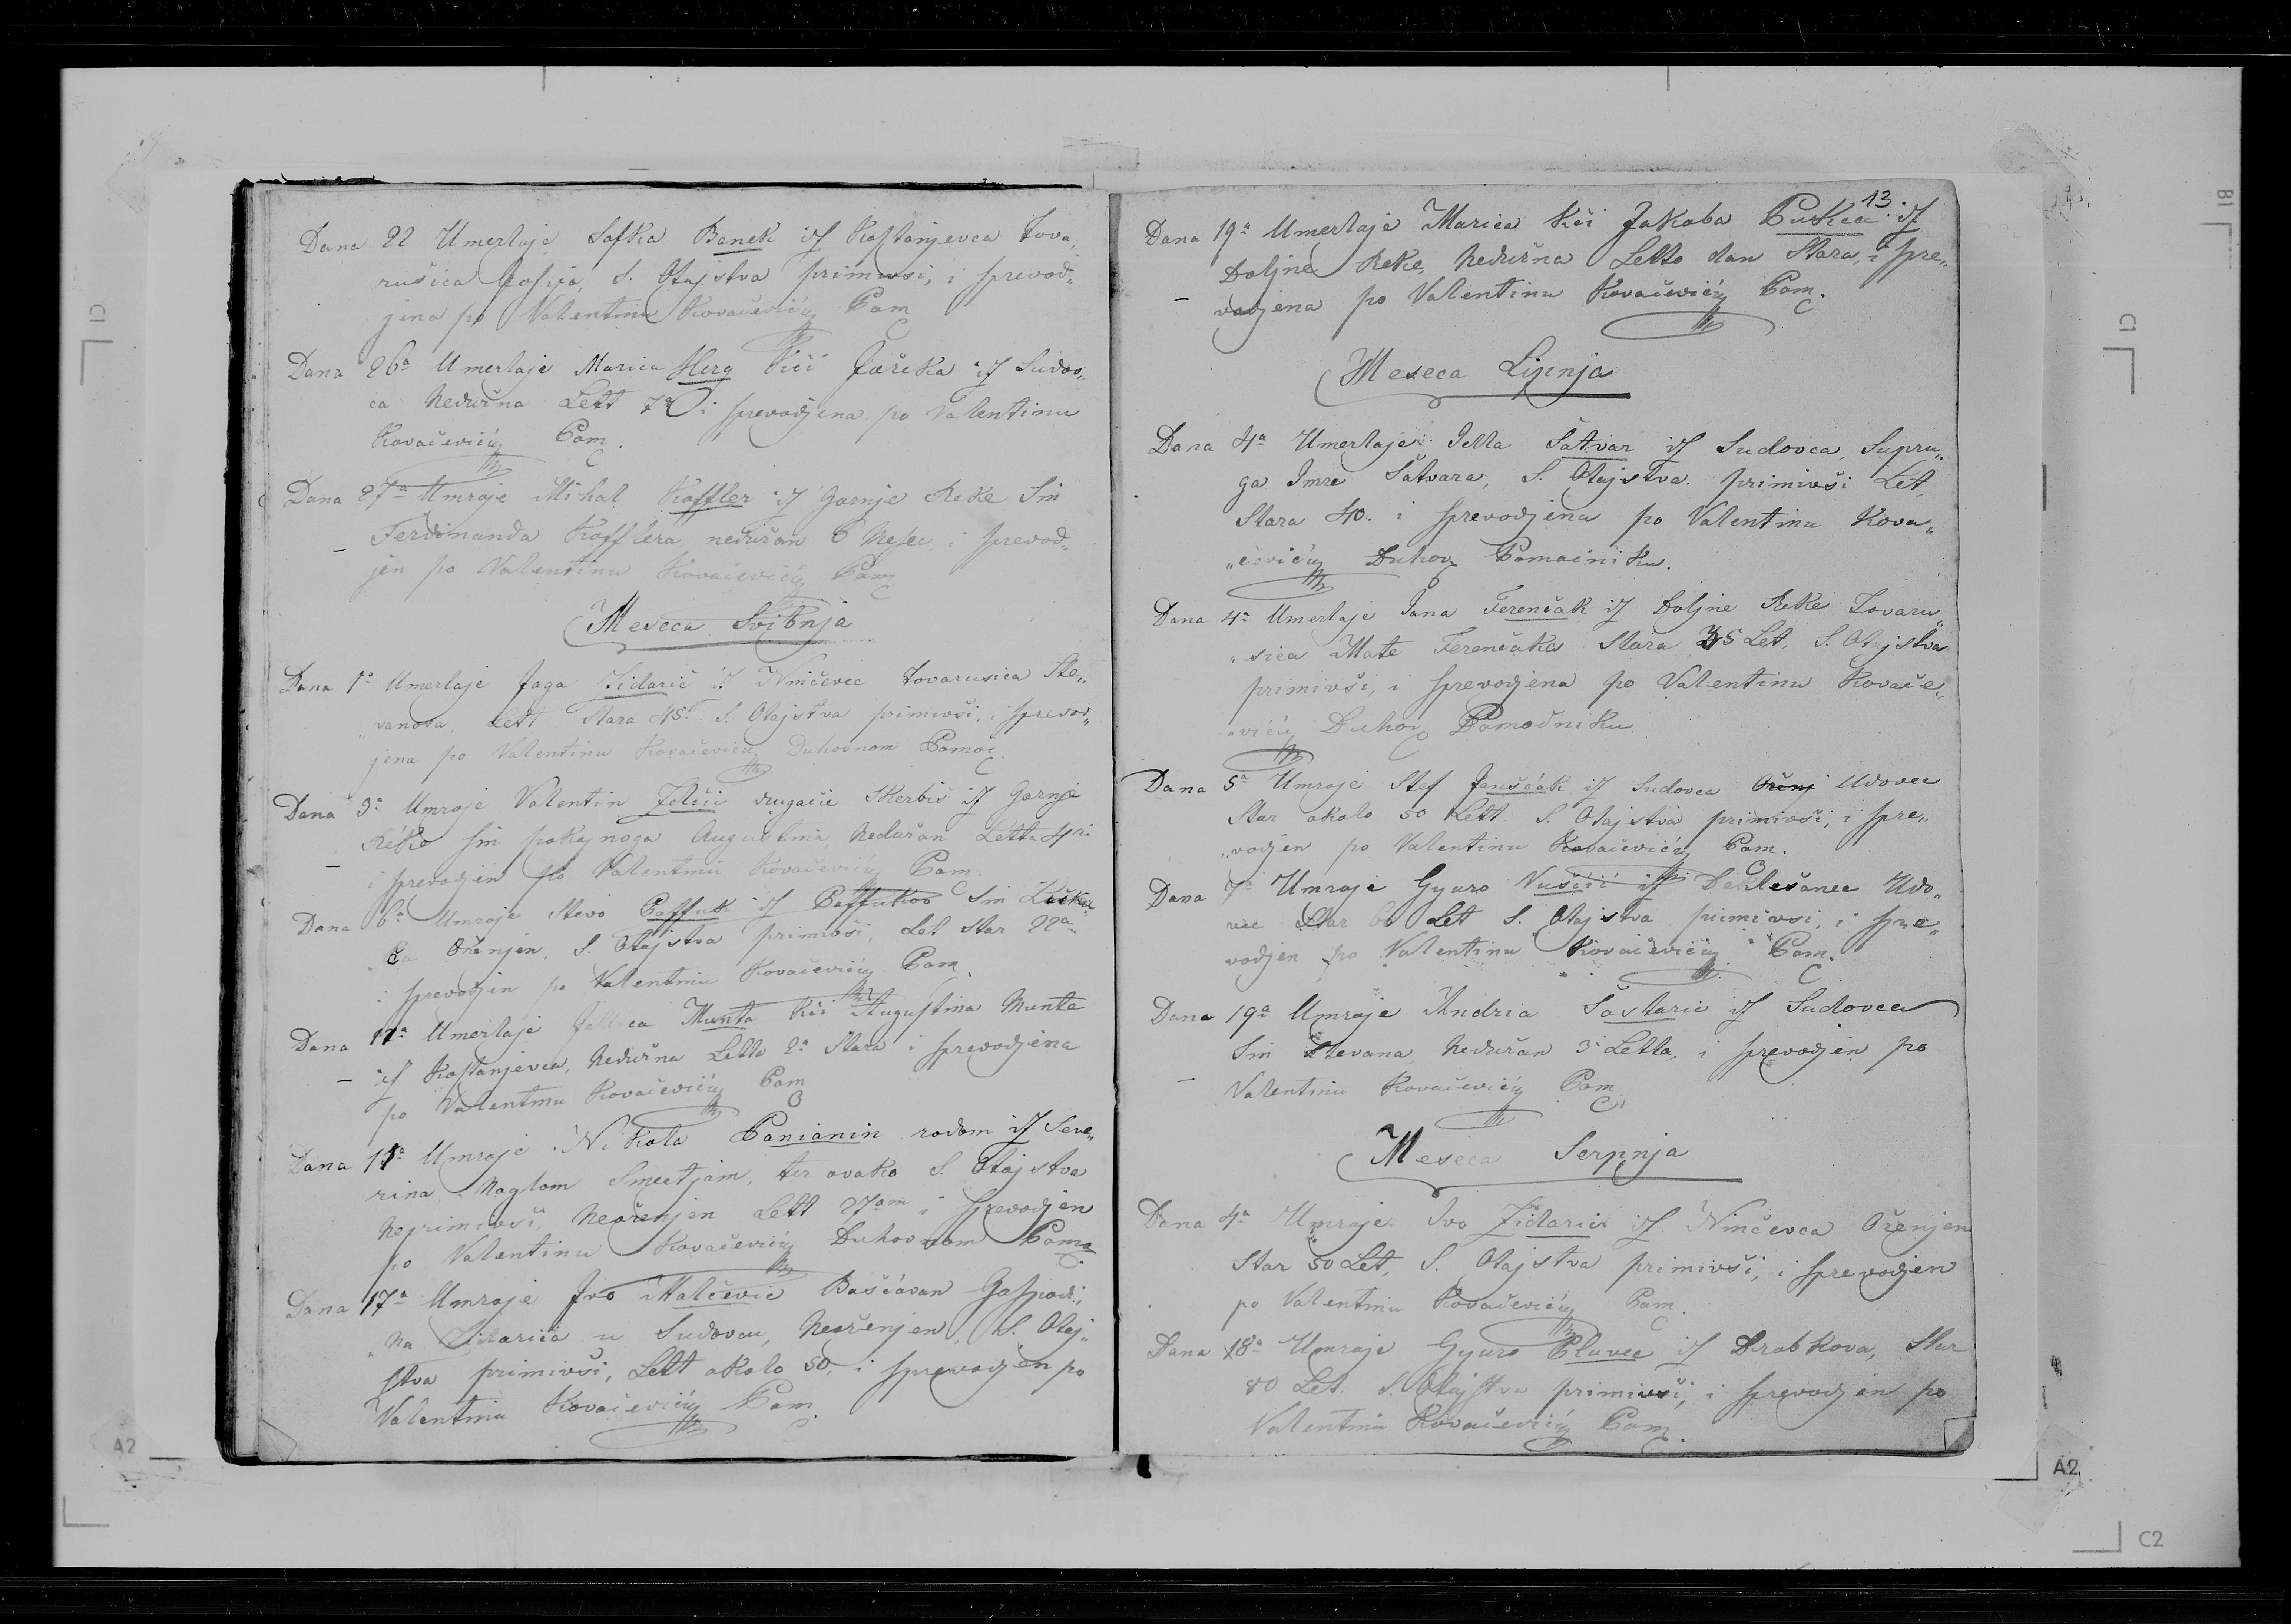 Dana 22 Umerlaje Sofka Banek iz Kostanjevca Tova„
rušica Josipa, S. Otajstva primivsi, i sprevod„
jena po Valentinu Kovačeviću Pom
Dana 26a Umerlaje Marica Herg kći Jožeka iz Sudov„
ca Nedužna Lett 7 i sprevodjena po Valentinu
Kovačeviću Pom.
Dana 27a Umroje Mihal Koffler iz Gornje Reke Sin
Ferdinanda Kofflera nedužan 6 Mesec i sprevod„
jen po Valentinu Kovačeviću Pom
Meseca Svibnja
Dana 1a Umerlaje Jaga Zidarić iz Ninčevec tovarusica Ste„
„vanova, Lett Stara 45. S. Otajstva primivši, i sprevod„
jena po Valentinu Kovačeviću Duhovnom Pomoć
Dana 3a Umroje Valentin drugačie Skerbiš iz Gornje
Réke sin pokojnoga Augustina, Nedužan Letta 4ri
i sprevodjen po Valentinu Kovačeviću Pom.
Dana 6a Umroje Stevo Paffuk iz Paffukov Sin
Oženjen, S. Otajstva primivši, Let star 22a
i sprevodjen po Valentinu Kovačeviću Pom.
Dana 11a Umerlaje Munta kći Augustina Munte
iz Kostanjevca, Nedužna Letta 2a Stara i sprevodjena
po Valentinu Kovačeviću Pom
Dana 11a Umroje Nikola Panianin rodom iz Seve„
rina, Naglom Smertjom, ter ovako S. Otajstva
Neprimivši, Neoženjen Lett 27om i sprevodjen
po Valentinu Kovačeviću Duhovnom Pomo
Dana 17a Umroje Ivo Malčević Baščovan Gospodi„
„na Zidarića u Sudovcu, Neoženjen, S. Otaj„
stva primivši, Lett okolo 50, i sprevodjen po
Valentinu Kovačeviću Pom
13
Dana 19a Umerlaje Marica kći Jakoba Puskca iz
Doljne Reke, Nedužna Letto dan Stara, i spre„
vodjena po Valentinu Kovačeviću Pom.
Meseca Lipnja
Dana 4a Umerlaje Jella Šatvar iz Sudovca, Supru„
ga Imre Šatvara, S. Otajstva primivši Let,
Stara 40. i sprevodjena po Valentinu Kova„
„čeviću Duhov Pomoćniku.
Dana 4a Umerlaje Jana Ferenčak iz Doljne Reke Tovaru„
„sica Mate Ferenčaka Stara 35 Let, S. Otajstva
primivši, i sprevodjena po Valentinu Kovače„
„viću Duhov Pomoćniku
Dana 5a Umroje Stef Janščák iz Sudovca Oženj Udovec
Star okolo 50 Lett. S. Otajstva primivši, i spre„
„vodjen po Valentinu Kovačeviću Pom.
Dana 7a Umroje Gyuro Vusčić iz Deklešanec Udo„
vec Star 60 Let S. Otajstva primivsi, i spre„
vodjen po Valentinu Kovačeviću Pom.
Dana 19a Umroje Andria Šostarić iz Sudovca
Sin Stevana, Nedužan 3 Letta, i sprevodjen po
Valentinu Kovačeviću Pom
Meseca Serpnja
Dana 4a Umroje Ivo Zidarić iz Ninčevca Oženjen
Star 50 Let, S. Otajstva primivši, i sprevodjen
po Valentinu Kovačeviću Pom.
Dana 18a Umroje Gyuro Pluvec iz Drobkova, Star
80 Let. S. Otajstva primivši, i sprevodjen po
Valentinu Kovačeviću Pom.
C1
A2
B1
C1
A2
C2